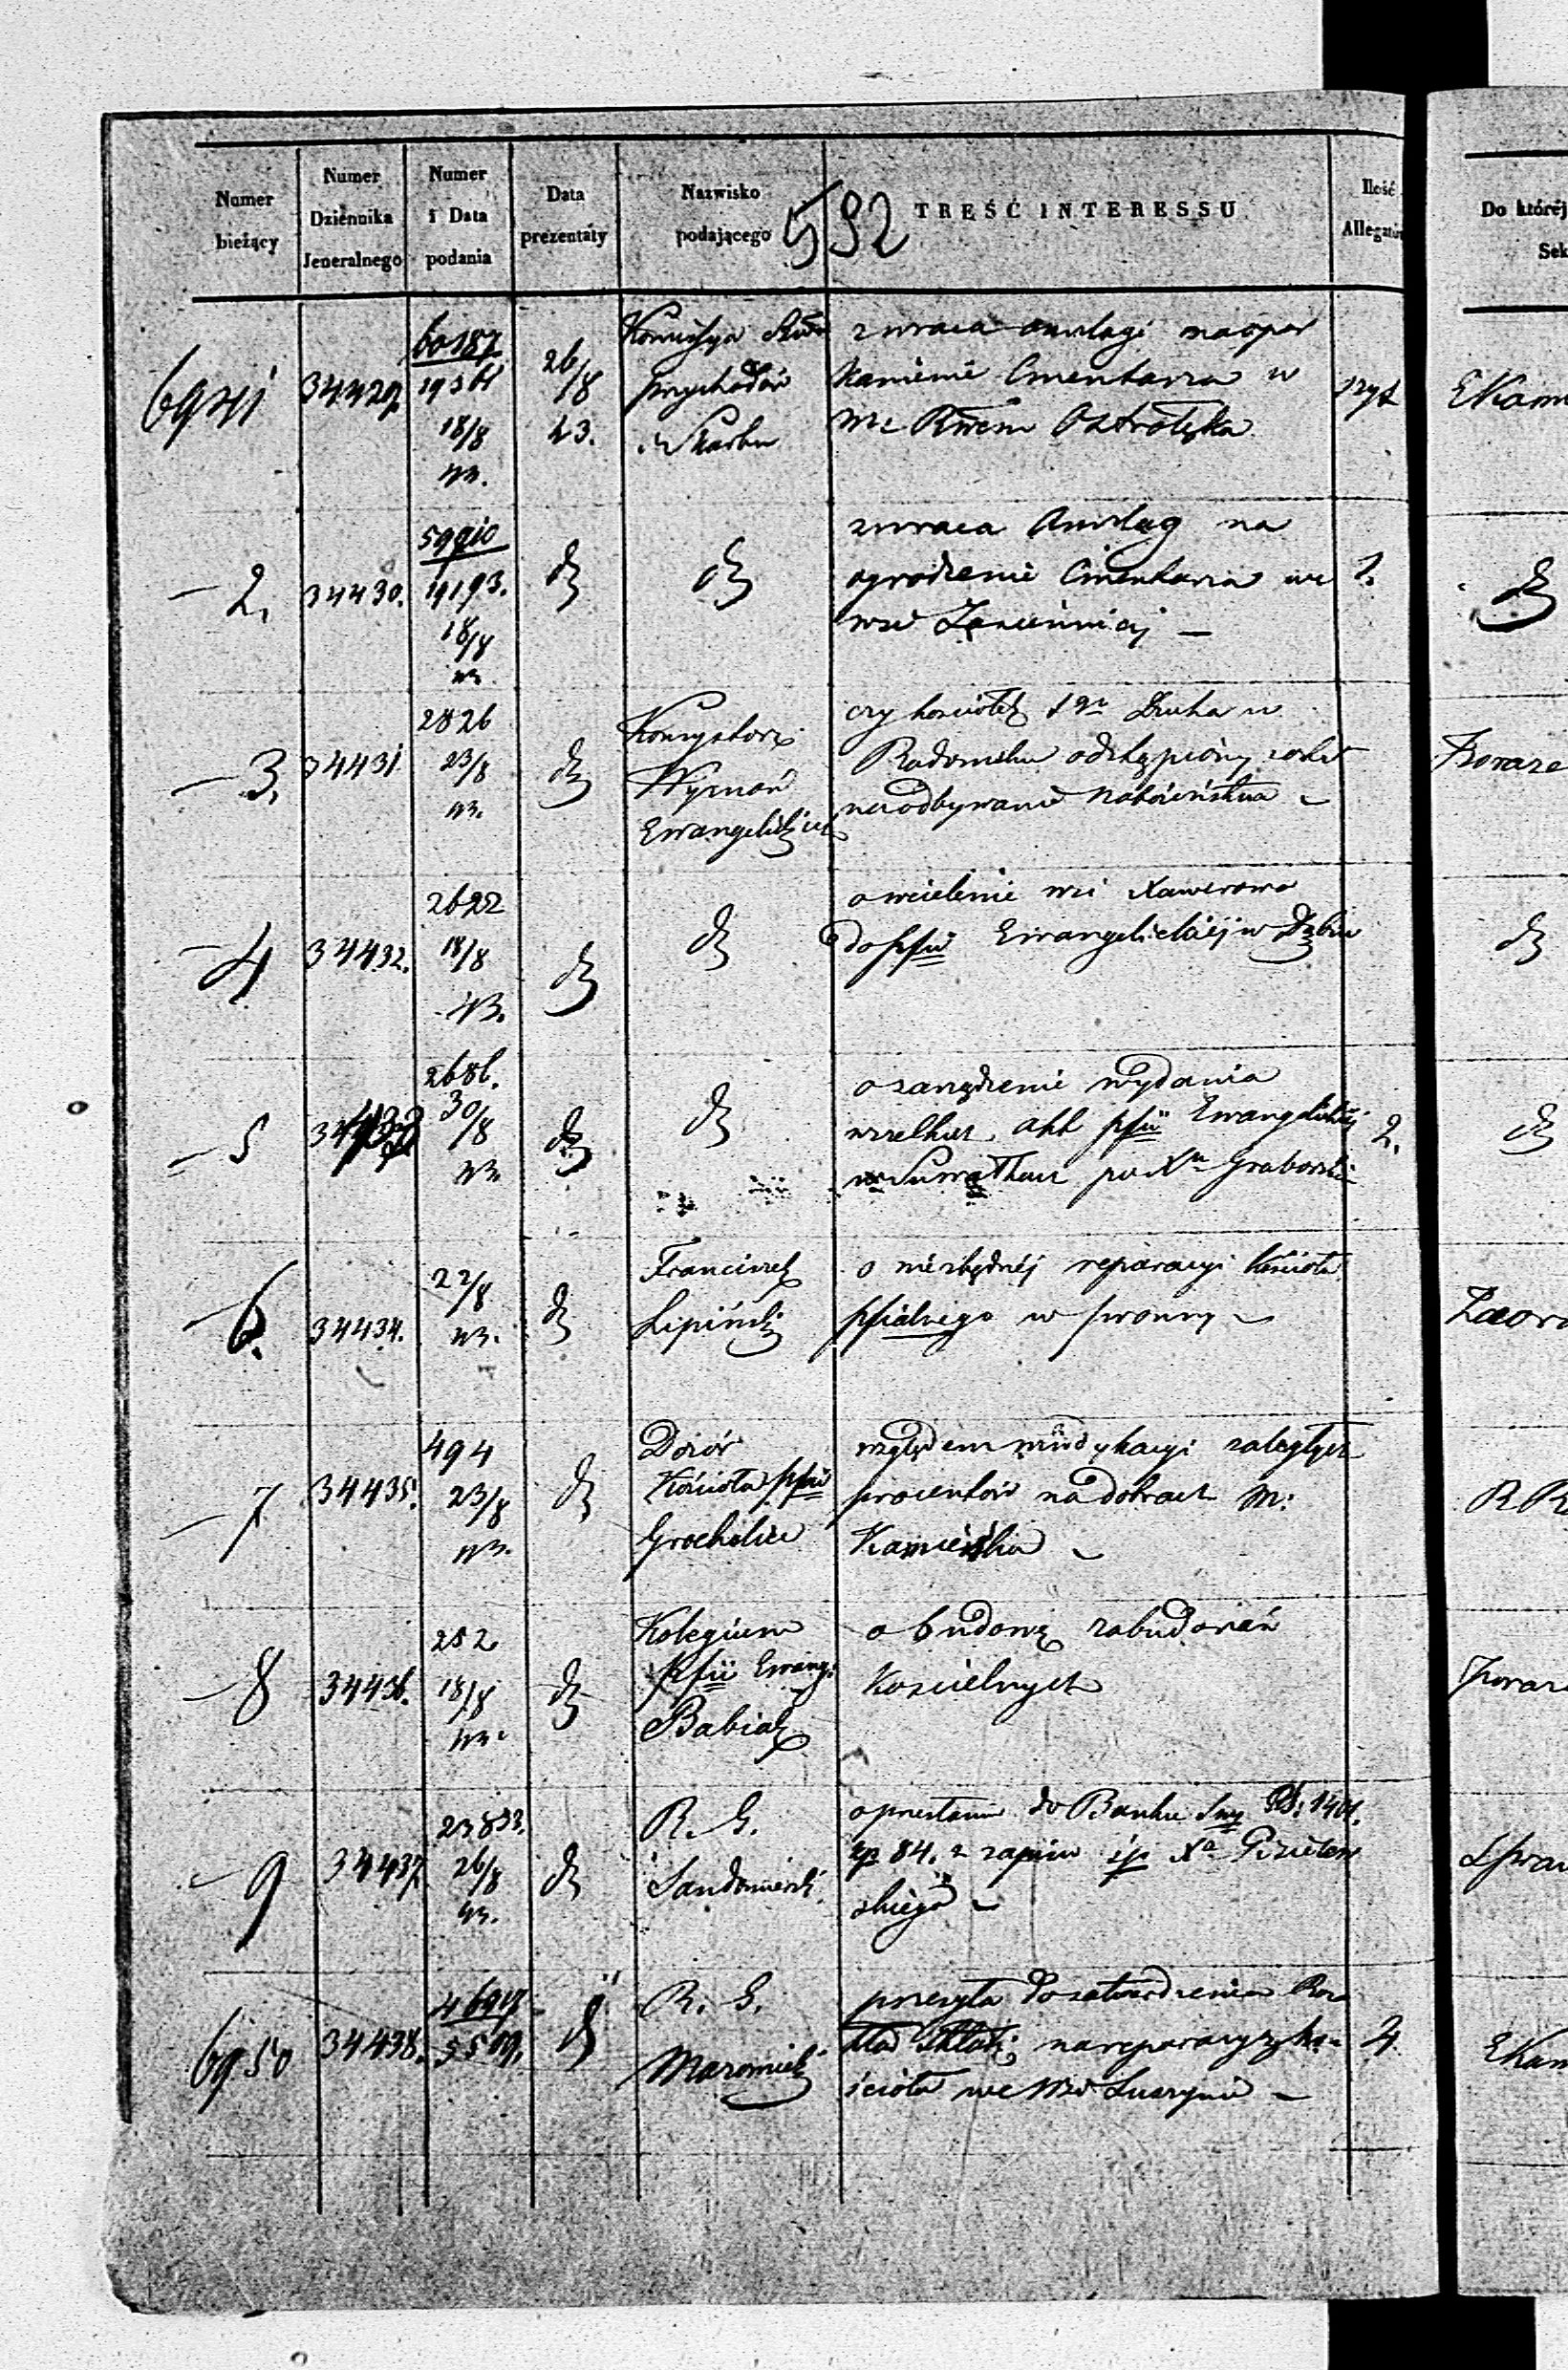 592
Numer bieżący
Numer Dziennika Jeneralnego
Numer i Data podania
Data prezentaty
Nazwisko podającego
TREŚĆ INTERESSU
Ilość
Do której Sek
6941 34429 60187
19361 18/8 43. 26/8 43.
Kommissya
Przychodów
i Skarbu
zwraca anszlagi na opar
kanienie Cmentarza w
Mc Rwem Ostrołęka
E Kom
2. 34430. 59910
19193. 18/8 43. dt dt
zwraca Anszlag na
ogrodzenie Cmentarza we
wsi
1.
dt
3. 34431 2826
23/8 43. dt
Konsystorz
Wyznań
Ewangelickich
czy kościołek Sgo Ducha w
Radomsku odstąpiony
na odbywanie Nabożeństwa
4 34432. 2622
18/8 43. dt dt
o wcielenie wsi Xawerowa
do pfii Ewangelickiej w Dąbiu
dt
5 34433 2686.
30/8 43. dt dt
o zarządzenie wydania
wszelkich akt pfii Ewangelickiej
w Suwałkach po Xu Grabowskim
2.
dt
6. 34434. 22/8 43. dt
Franciszek
Lipiński
o niezbędnej reparacyi kościoła
pfialnego w
7 34435. 494
23/8 43. dt
Dozór
Kościoła pfii
Grocholice
względem windykacyi zaległych
procentów na dobrach M:
Kamieńska
8 34436. 252
18/8 43. dt
Kolegium
pfii Ewang:
Babiak
o budowę zabudowań
Kościelnych
9 34437 23833.
26/8 43. dt
R. G.
Sandomierski
o przesłaniu do Banku Sumy Rs: 1401.
kp 84. z zapisu śp Xa
skiego
6950 34438. 46948
5509. dt
R. G.
Mazowiecki
przesyła do zatwierdzenia Roz
kład Składki na reparacyę ko=
ścioła we Wsi
4
E Kom